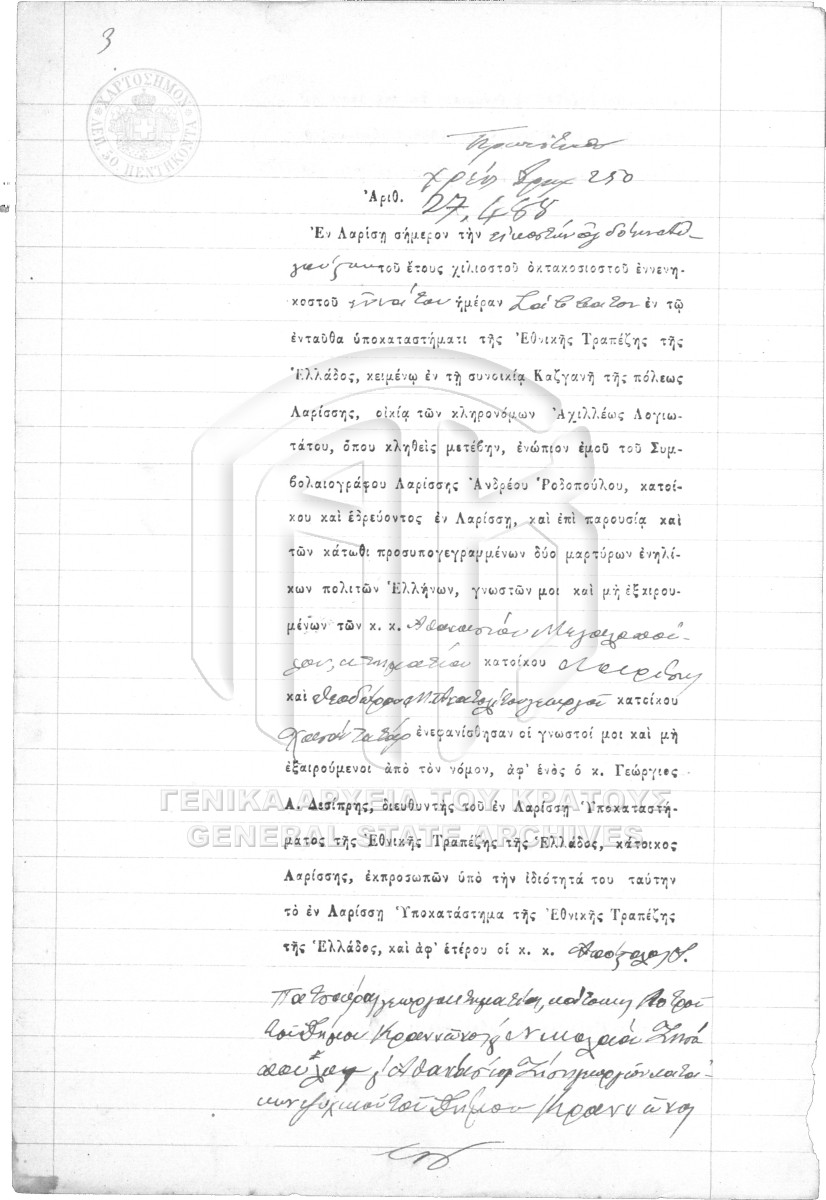 3
ΧΑΡΤΟΣΗΜΟΝ
ΛΕΠ. 50 ΠΕΝΤΗΚΟΝΤΑ
χρέος δραχ 250
Ἀριθ. 27,488
Ἐν Λαρίσῃ σήμερον τὴν εἰκοστὴν
τοῦ ἔτους χιλιοστοῦ ὀκτακοσιοστοῦ ἐννενη-
κοστοῦ ἐννάτου ἡμέραν Σάββατον ἐν τῷ
ἐνταῦθα ὑποκαταστήματι τῆς Ἐθνικῆς Τραπέζης τῆς
Ἑλλάδος, κειμένῳ ἐν τῇ συνοικίᾳ Καζγανῆ τῆς πόλεως
Λαρίσσης, οἰκίᾳ τῶν κληρονόμων Ἀχιλλέως Λογιω-
τάτου, ὅπου κληθεὶς μετέβην, ἐνώπιον ἐμοῦ τοῦ Συμ-
βολαιογράφου Λαρίσσης Ἀνδρέου Ῥοδοπούλου, κατοί-
κου καὶ ἑδρεύοντος ἐν Λαρίσσῃ, καὶ ἐπὶ παρουσίᾳ καὶ
τῶν κάτωθι προσυπογεγραμμένων δύο μαρτύρων ἐνηλί-
κων πολιτῶν Ἑλλήνων, γνωστῶν μοι καὶ μὴ ἐξαιρου-
μένων τῶν κ. κ. Ἀθανασίου Μεγαλοπού-
λου, κτηματίου κατοίκου Λαρίσης
καὶ Θεοδώρου γεωργοῦ κατοίκου
Χασὰν Τατάρ ἐνεφανίσθησαν οἱ γνωστοί μοι καὶ μὴ
ἐξαιρούμενοι ἀπὸ τὸν νόμον, ἀφ' ἑνὸς ὁ κ. Γεώργιος
Α. Δεσίπρης, διευθυντὴς τοῦ ἐν Λαρίσσῃ Ὑποκαταστή-
ΓΕΝΙΚΑ ΑΡΧΕΙΑ ΤΟΥ ΚΡΑΤΟΥΣ
GENERAL STATE ARCHIVES
ματος τῆς Ἐθνικῆς Τραπέζης τῆς Ἑλλάδος, κάτοικος
Λαρίσσης, ἐκπροσωπῶν ὑπὸ τὴν ἰδιότητά του ταύτην
τὸ ἐν Λαρίσσῃ Ὑποκατάστημα τῆς Ἐθνικῆς Τραπέζης
τῆς Ἑλλάδος, καὶ ἀφ' ἑτέρου οἱ κ. κ. Ἀπόστολος
κάτοικος
τοῦ Δήμου Κραννῶνος Νικόλαος
Ἀθανάσιος
τοῦ Δήμου Κραννῶνος